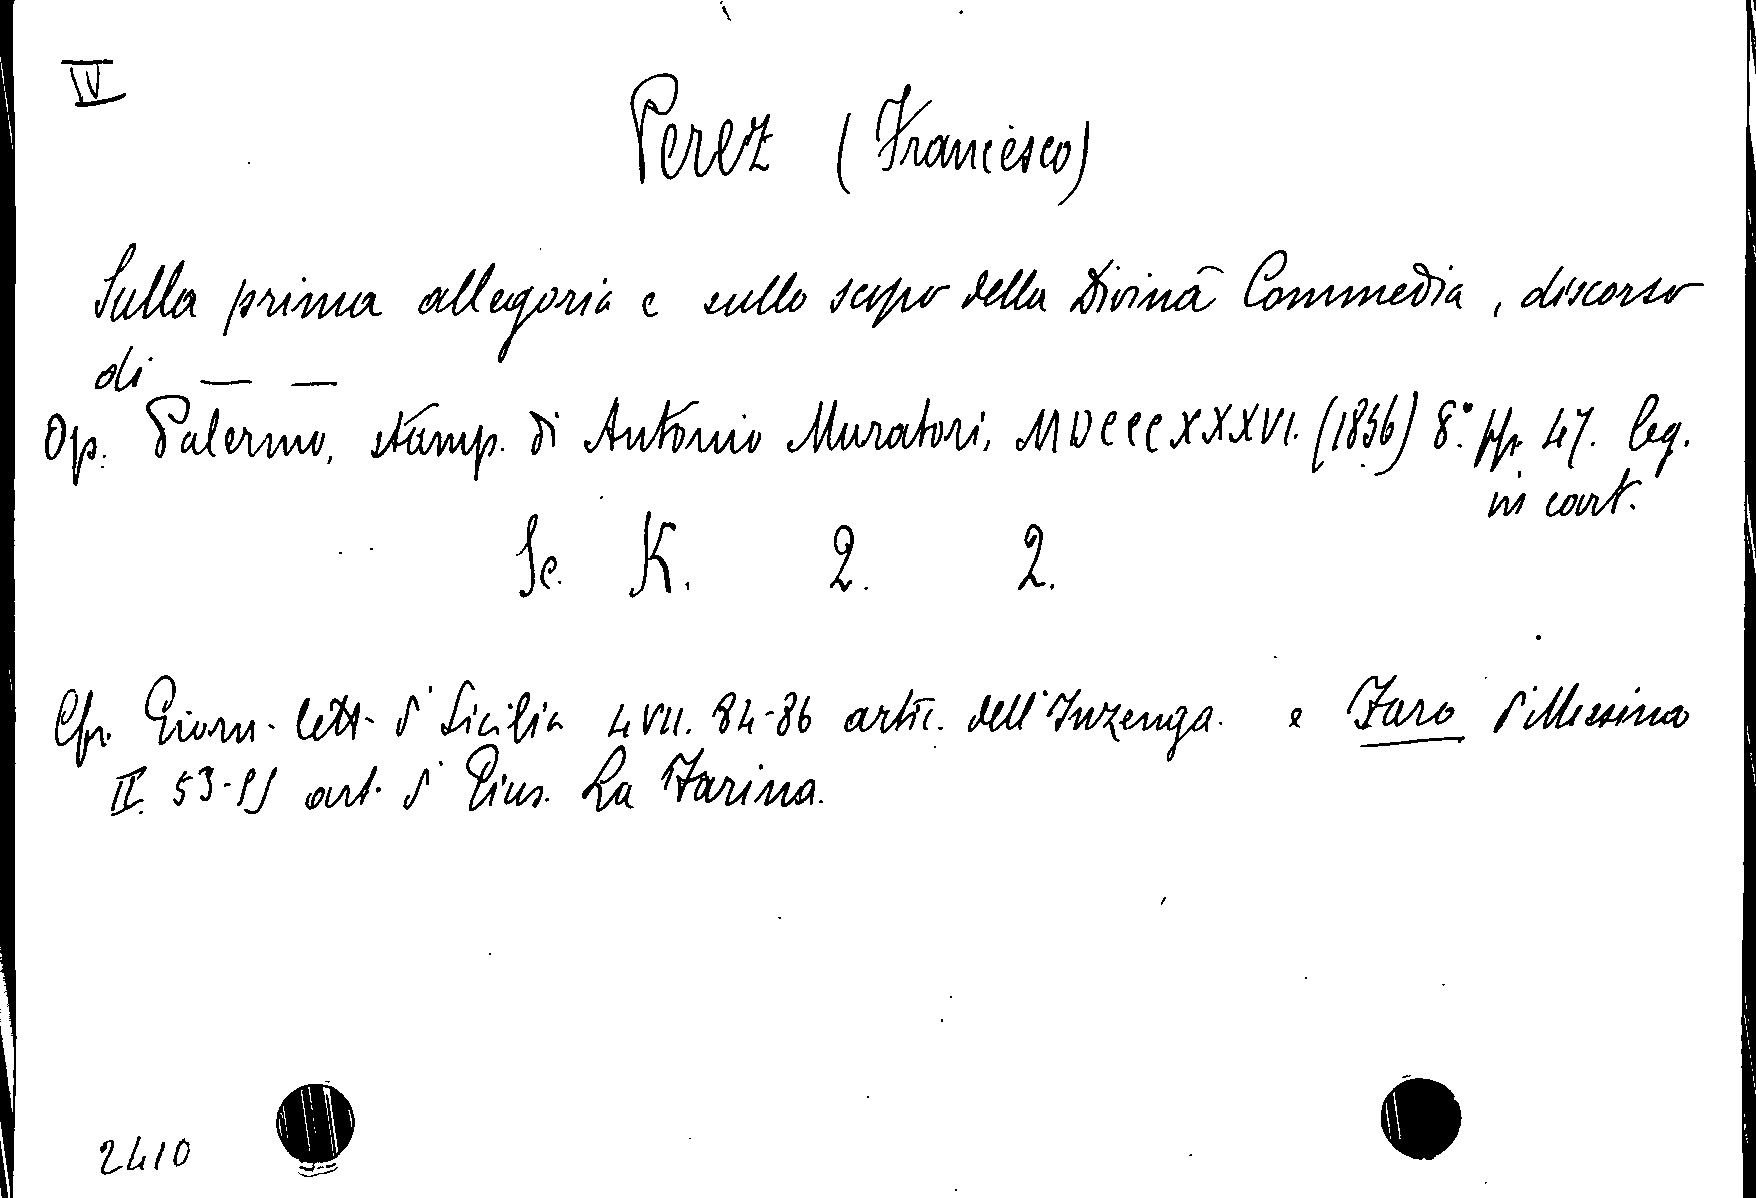 IV
Perez (Francesco)
Sulla prima allegoria e sullo scopo della Divina Commedia, discorso
di — —
Op. Palermo, stamp. di Antonio Muratori, MDCCCXXXVI. (1836) 8.° pp. 47. leg.
in cart.
Sc. K. 2. 2.
Cfr. Giorn. lett. d' Sicilia LVII. 84-86 artic. dell'Inzenga. e Faro d'Messina
II. 53- art. d' Gius. La Farina.
2410